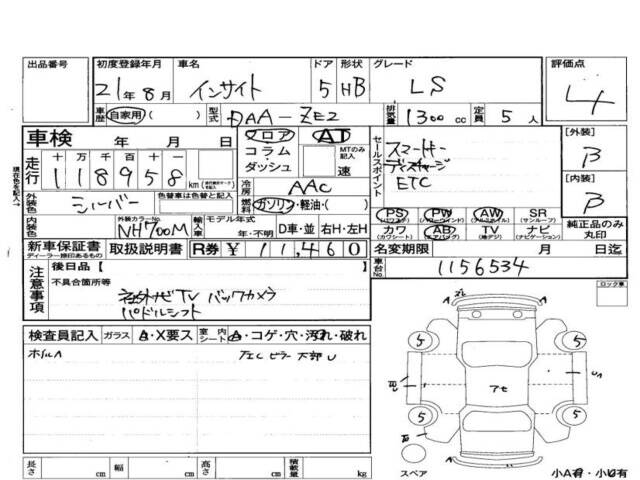 出品番号 初度登録年月 車名 ドア 形状 グレード 評価点
21年8月 インサイト 5 HB LS 4
車歴 自家用( ) 型式 DAA-ZE2 排気量 1300cc 定員 5人
車検 年 月 日 フロア AT
コラム・ダッシュ MTのみ記入 速
走行 十 万 千 百 十 km
118958
現在色を記入→
冷房 AAC
外装色 シルバー 色替車は色替と記入
燃料 ガソリン・軽油( )
内装色 外装カラーNo. NH700M 輸入車 モデル年式 年・不明 D車・並 右H・左H
セールスポイント
スマートキー
ディスチャージ
ETC
PS (パワステ) PW (パワーウインド) AW (アルミホイル) SR (サンルーフ)
カワ (カワシート) AB (エアバッグ) TV (地デジ) ナビ (ナビゲーション)
純正品のみ丸印
[外装] B
[内装] B
新車保証書 ディーラー捺印あるもの 取扱説明書 R券 ¥11,460
名変期限 月 日迄
車台No. 1156534
注意事項
後日品【 】
不具合箇所等
社外ナビTV バックカメラ
パドルシフト
ロック車
検査員記入 ガラス A・X要ス 室内シート A・コゲ・穴・汚れ・破れ
下部
5 5
アセ
5 5
スペア 小A有・小U有
長さ cm 幅 cm 高さ cm 積載量 kg